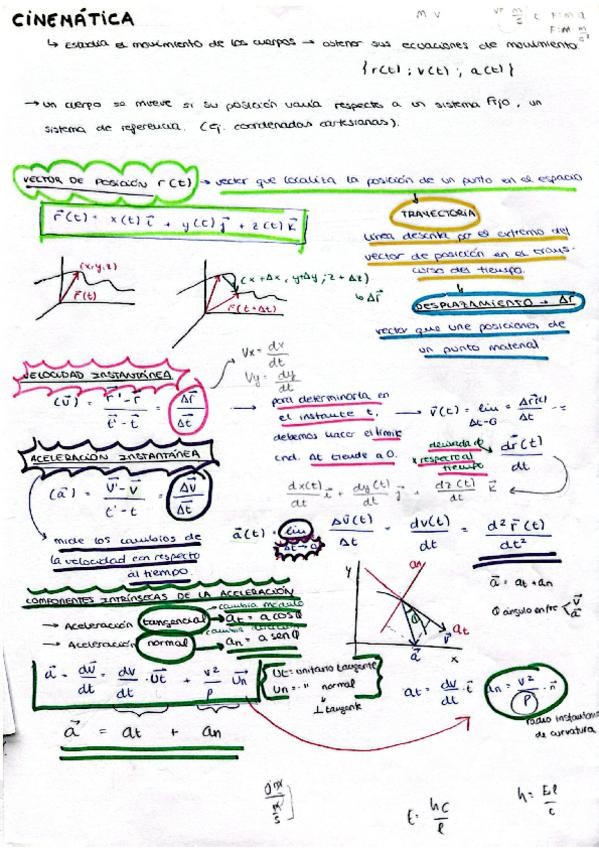 CINEMÁTICA
M V
F=m·a
↳ Estudia el movimiento de los cuerpos → obtener sus ecuaciones de movimiento
{r(t); v(t); a(t)}
→ un cuerpo se mueve si su posición varía respecto a un sistema fijo, un
sistema de referencia. (ej. coordenadas cartesianas).
VECTOR DE POSICIÓN r(t) → vector que localiza la posición de un punto en el espacio
r⃗(t) = x(t) i⃗ + y(t) j⃗ + z(t) k⃗
TRAYECTORIA
línea descrita por el extremo del
vector de posición en el trans-
curso del tiempo.
(x,y,z)
r⃗(t)
(x+Δx, y+Δy, z+Δz)
↳ Δr⃗
r⃗(t+Δt)
DESPLAZAMIENTO → Δr⃗
vector que une posiciones de
un punto material
VELOCIDAD INSTANTÁNEA
Vx = dx/dt
Vy = dy/dt
(v⃗) = (r⃗' - r⃗)/(t' - t) = Δr⃗/Δt
→ para determinarla en
el instante t,
debemos hacer el límite
cnd. Δt tiende a 0.
→ v⃗(t) = lim Δt→0 = Δr⃗(t)/Δt =
derivada de
r respecto al
tiempo
dr⃗(t)/dt
dx(t)/dt i⃗ + dy(t)/dt j⃗ + dz(t)/dt k⃗
ACELERACIÓN INSTANTÁNEA
(a⃗) = (v⃗' - v⃗)/(t' - t) = Δv⃗/Δt
mide los cambios de
la velocidad con respecto
al tiempo.
a⃗(t) = lim Δt→0 Δv⃗(t)/Δt = dv(t)/dt = d²r⃗(t)/dt²
COMPONENTES INTRÍNSECAS DE LA ACELERACIÓN
cambia módulo
→ Aceleración tangencial → at = a cosθ
cambia dirección
→ Aceleración normal → an = a senθ
y
an
θ
at
v⃗
a⃗
x
a⃗ = at + an
θ ángulo entre v⃗ a⃗
a⃗ = dv⃗/dt = dv/dt · u⃗t + v²/ρ u⃗n
Ut = unitario tangente
Un = " normal
↓
⊥ tangente
a⃗ = at + an
at = dv/dt · t⃗
an = v²/ρ · n⃗
radio instantáneo
de curvatura